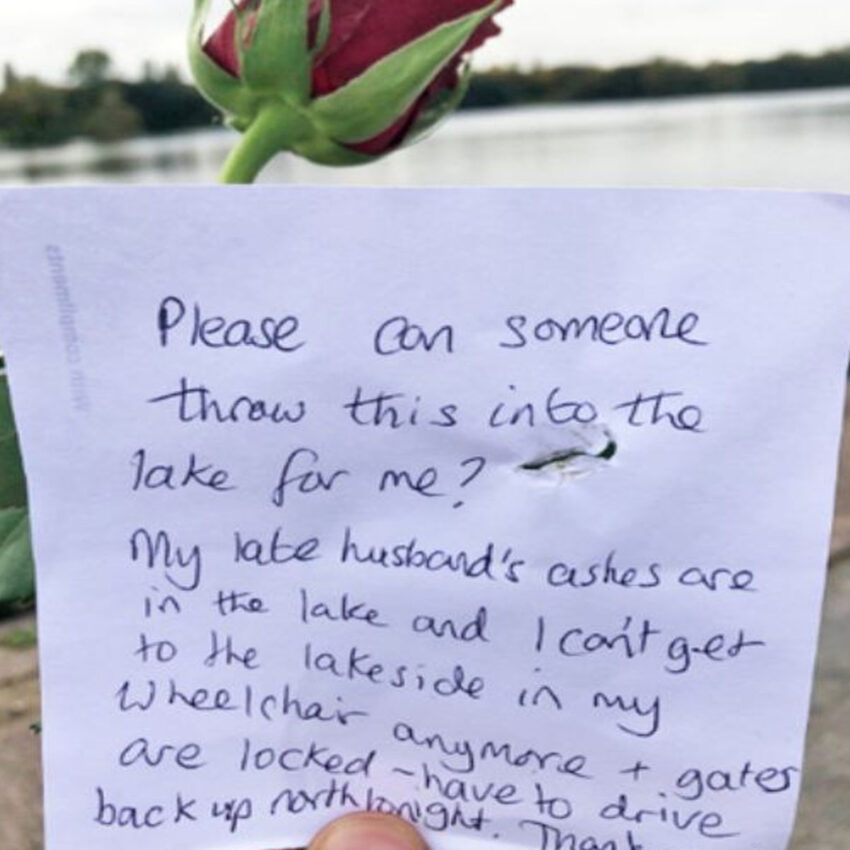 Please can someone
throw this into the
lake for me?
My late husband's ashes are
in the lake and I can't get
to the lakeside in my
wheelchair anymore + gates
are locked - have to drive
back up north tonight. Thank
With compliments